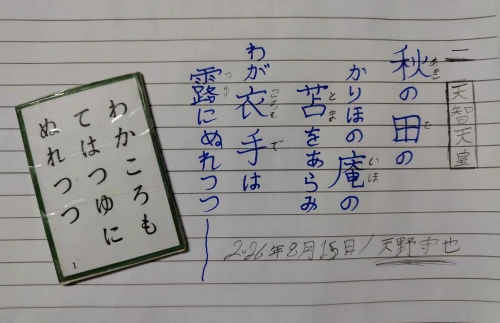 天智天皇
秋の田の
あき
た
かりほの庵の
いほ
苫をあらみ
とま
わが衣手は
ころも
で
露にぬれつつ
つゆ
2026年8月15日/天野
わかころも
てはつゆに
ぬれつつ
1